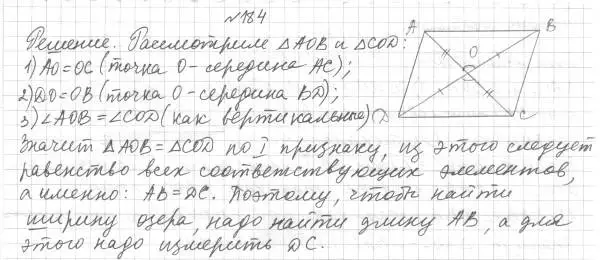 №184
Решение. Рассмотрим △AOB и △COD:
1) AO=OC (точка O - середина AC);
2) DO=OB (точка O - середина BD);
3) ∠AOB=∠COD (как вертикальные)
Значит △AOB=△COD по I признаку, из этого следует
равенство всех соответствующих элементов,
а именно: AB=DC. Поэтому, чтобы найти
ширину озера, надо найти длину AB, а для
этого надо измерить DC.
A
B
O
D
C